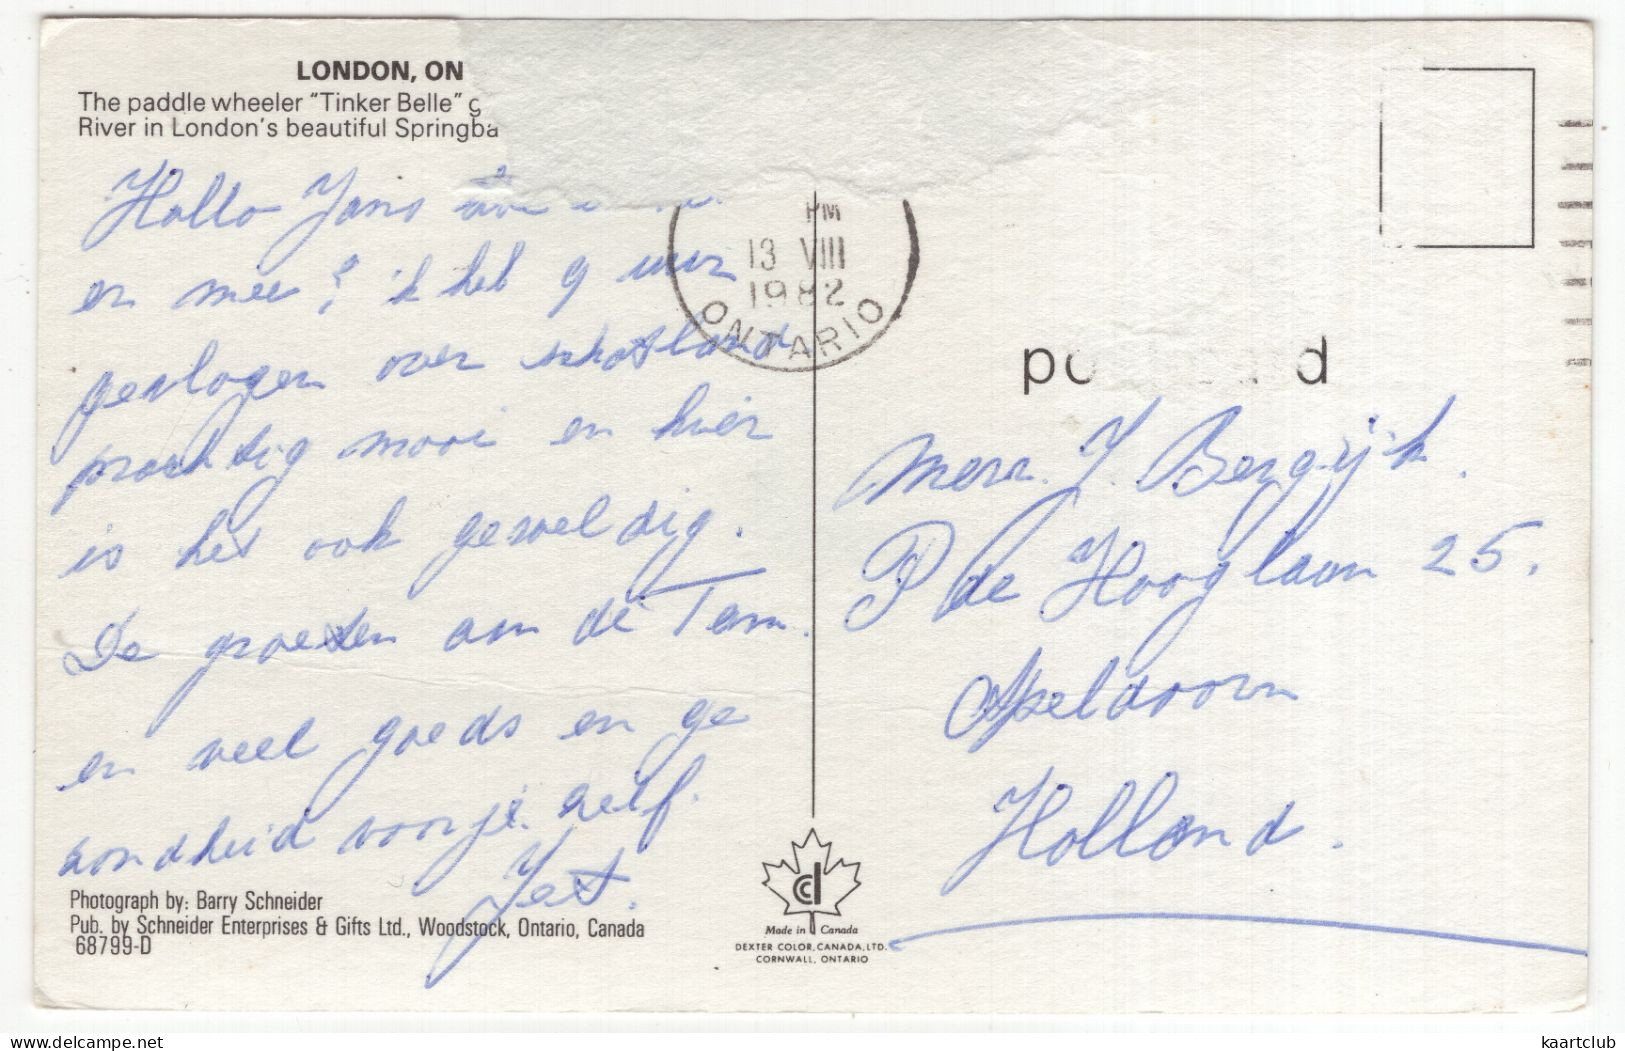 LONDON, ON
The paddle wheeler "Tinker Belle" g
River in London's beautiful Springba
Hallo Jans
en mee? ik heb 9 uur
gevlogen over schotland
prachtig mooi en hier
is het ook geweldig.
De groeten aan de Fam.
en veel goeds en ge
zondheid voor je zelf.
Jet.
Photograph by: Barry Schneider
Pub. by Schneider Enterprises & Gifts Ltd., Woodstock, Ontario, Canada
68799-D
PM
13 VIII
1982
ONTARIO
Made in Canada
DEXTER COLOR, CANADA, LTD.
CORNWALL, ONTARIO
po d
Mevr. J. Bergijk.
P de Hooglaan 25.
Apeldoorn
Holland.
kaartclub